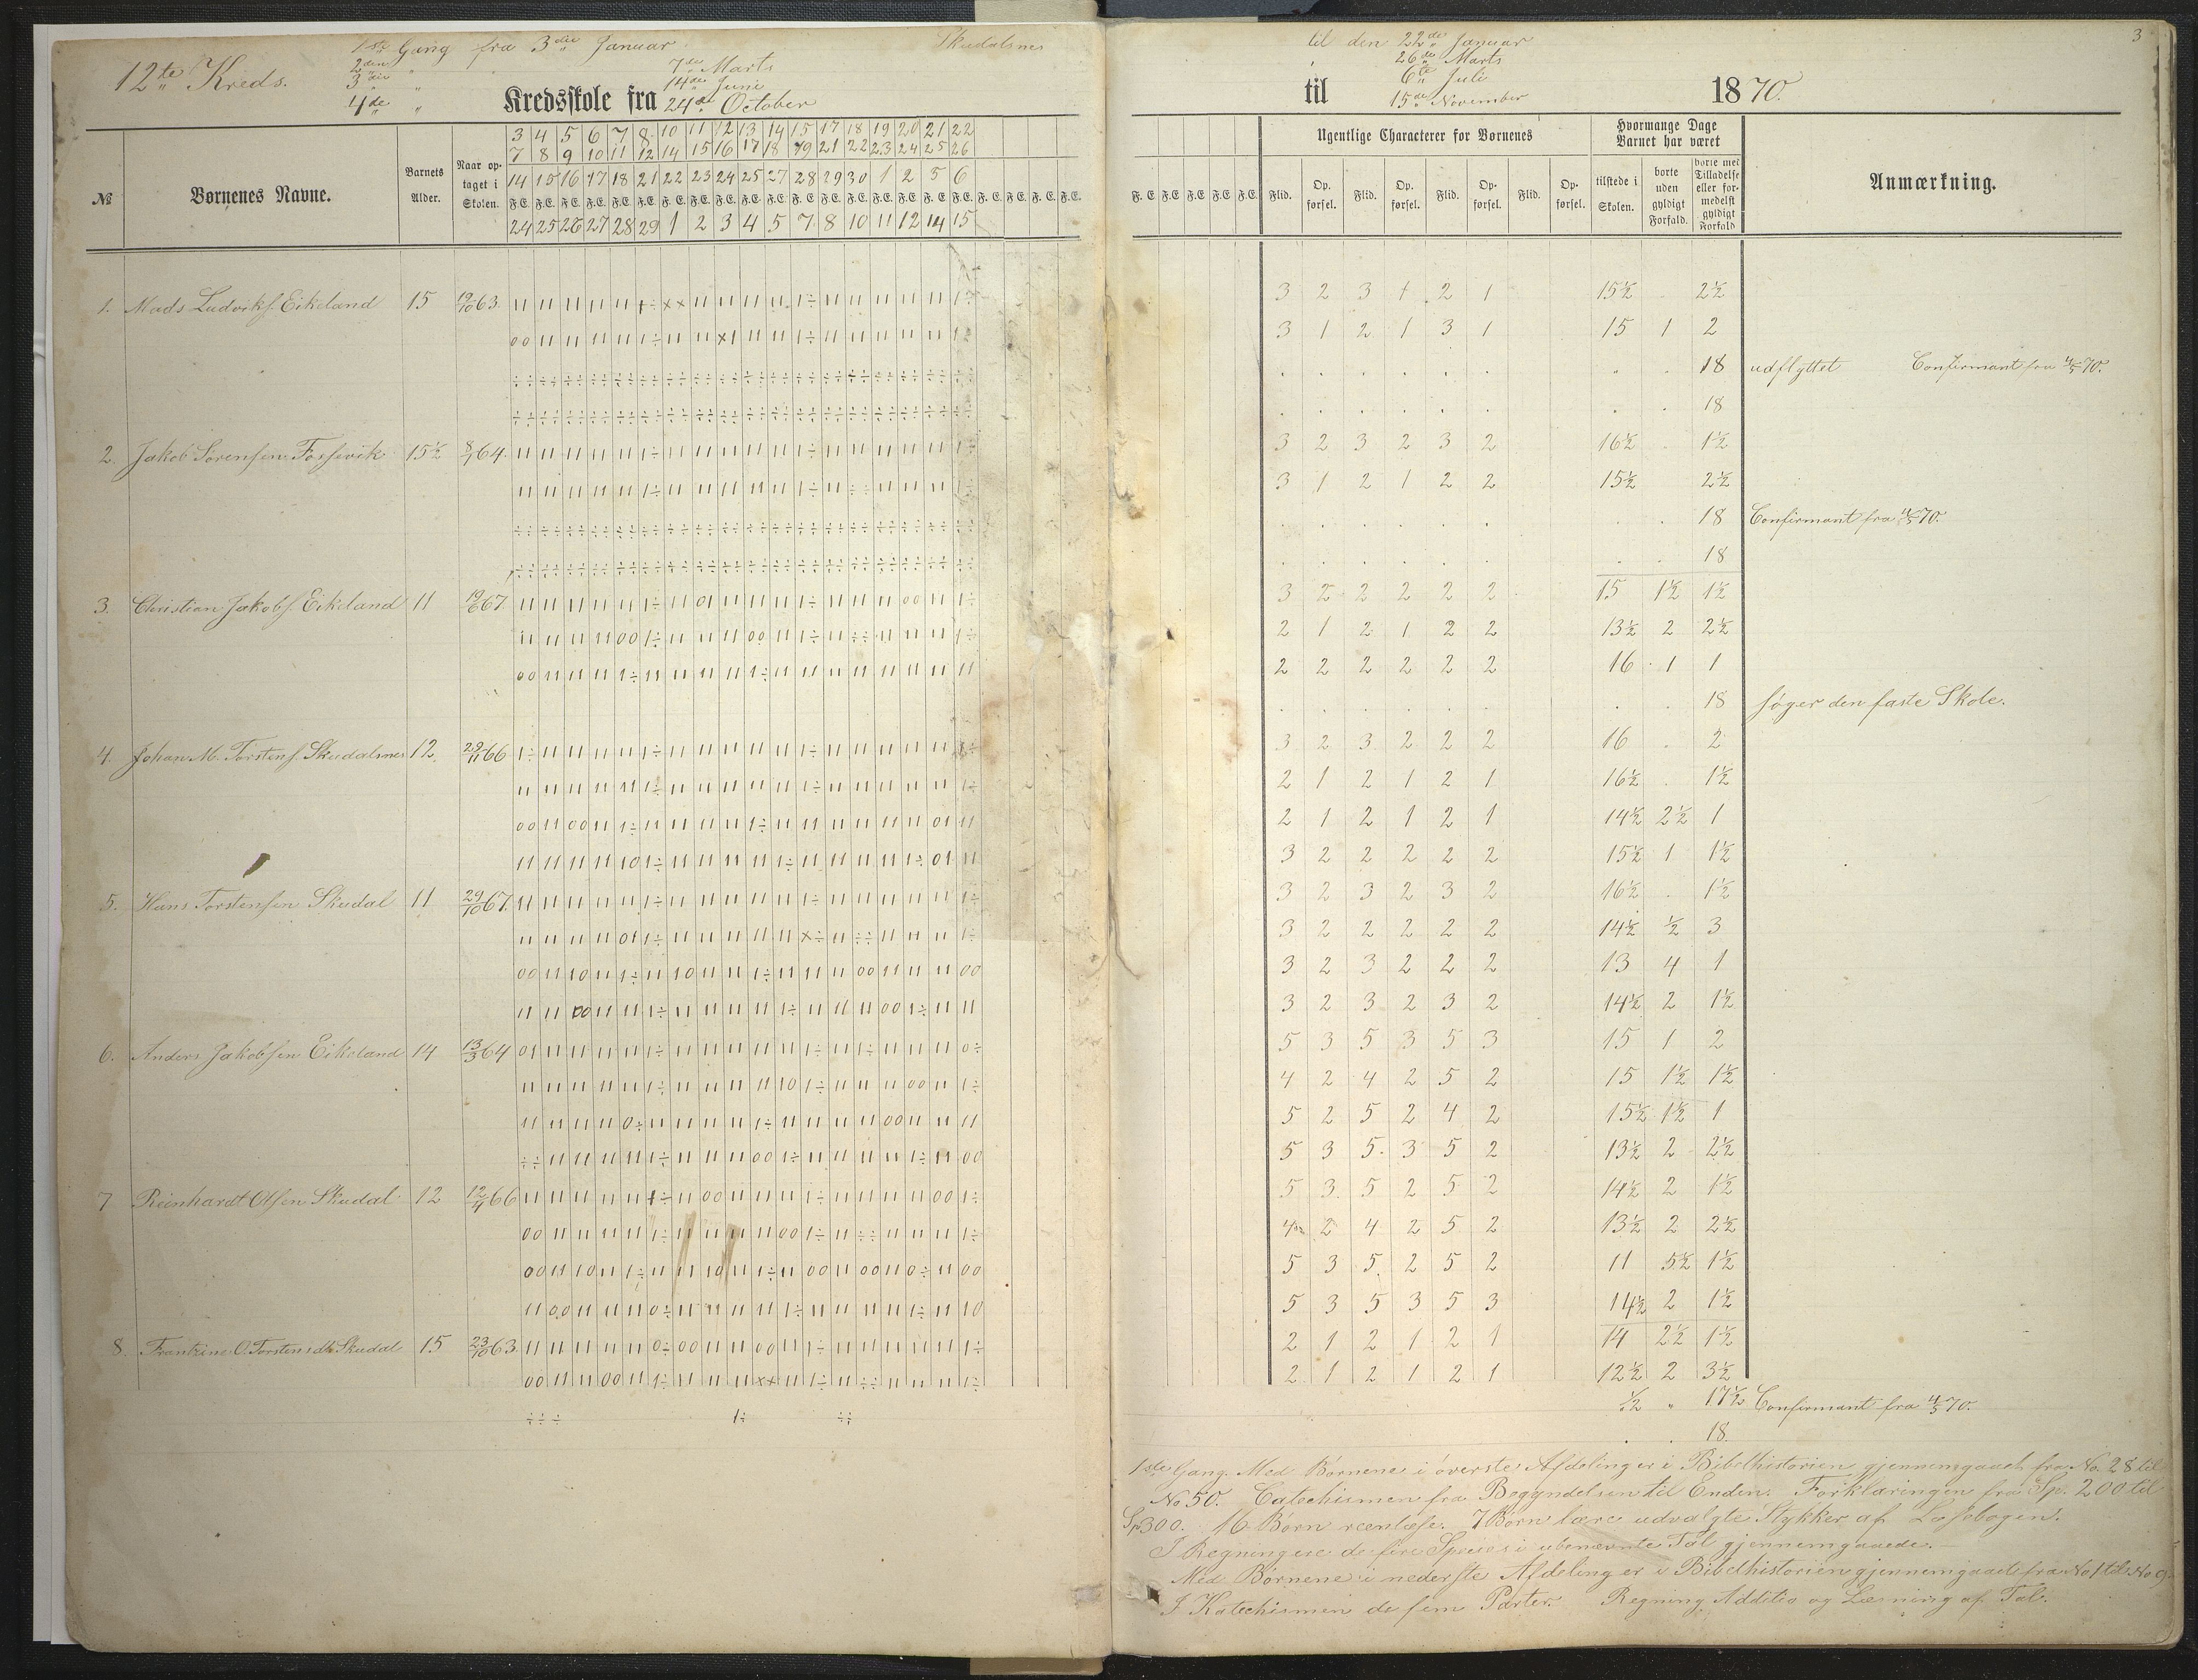 12te Kreds.
1ste Gang fra 3die Januar
Skudalsnes
til den 22de Januar
3
2den " 7de Marts
26de Marts
3die " 14de Juni
6te Juli
4de " Kredsskole fra 24de October
til 15de November 1870.
№ Børnenes Navne. Barnets Alder. Naar optaget i Skolen.
3 4 5 6 7 8 10 11 12 13 14 15 17 18 19 20 21 22
7 8 9 10 11 12 14 15 16 17 18 19 21 22 23 24 25 26
14 15 16 17 18 21 22 23 24 25 27 28 29 30 1 2 5 6
F. E. F. E. F. E. F. E. F. E. F. E. F. E. F. E. F. E. F. E. F. E. F. E. F. E. F. E. F. E. F. E. F. E. F. E. F. E. F. E. F. E. F. E.
24 25 26 27 28 29 1 2 3 4 5 7 8 10 11 12 14 15
F. E. F. E. F. E. F. E. F. E.
Ugentlige Characterer for Børnenes
Flid. Opførsel. Flid. Opførsel. Flid. Opførsel. Flid. Opførsel.
Hvormange Dage Barnet har været
tilstede i Skolen. borte uden gyldigt Forfald. borte med Tilladelse eller formedelst gyldigt Forfald
Anmærkning.
1. Mads Ludviks. Eikeland 15 19/10 63. 3 2 3 1 2 1 15½ . 2½
3 1 2 1 3 1 15 1 2
18 udflyttet Confirmant fra 4/5 70.
18
2. Jakob Sørensen Fossevik 15½ 8/1 64. 3 2 3 2 3 2 16½ 1½
3 1 2 1 2 2 15½ 2½
18 Confirmant fra 4/5 70.
18
3. Christian Jakobs. Eikeland 11 19/6 67. 3 2 2 2 2 2 15 1½ 1½
2 1 2 1 2 2 13½ 2 2½
2 2 2 2 2 2 16 1 1
18 søger den faste Skole.
4. Johan M. Torstens. Skudalsnes 12. 29/11 66 3 2 3 2 2 2 16 . 2
2 1 2 1 2 1 16½ . 1½
2 1 2 1 2 1 14½ 2½ 1
3 2 2 2 2 2 15½ 1 1½
5. Hans Torstensen Skudal 11 29/10 67. 3 2 3 2 3 2 16½ . 1½
3 2 2 2 2 2 14½ ½ 3
3 2 3 2 2 2 13 4 1
3 2 3 2 3 2 14½ 2 1½
6. Anders Jakobsen Eikeland 14 13/3 64 5 3 5 3 5 3 15 1 2
4 2 4 2 5 2 15 1½ 1½
5 2 5 2 4 2 15½ 1½ 1
5 3 5 3 5 2 13½ 2 2½
7 Reinhardt Olsen Skudal 12 12/4 66 5 3 5 2 5 2 14½ 2 1½
4 2 4 2 5 2 13½ 2 2½
5 3 5 2 5 2 11 5½ 1½
5 3 5 3 5 3 14½ 2 1½
8. Frantzine O. Torstensdt. Skudal 15 23/10 63. 2 1 2 1 2 1 14 2½ 1½
2 1 2 1 2 1 12½ 2 3½
½ " 17½ Confirmant fra 4/5 70.
18.
1ste Gang. Med Børnene i øverste Afdeling er i Bibelhistorien gjennemgaaet fra No. 28 til
No 50. Catechismen fra Begyndelsen til Enden. Forklaringen fra Sp. 200 til
Sp 300. 16 Børn reenlæse. 7 Børn lære udvalgte Stykker af Læsebogen.
I Regning ere de fire Species i ubenævnte Tal gjennemgaaede.
Med Børnene i nederste Afdeling er i Bibelhistorien gjennemgaaet fra No 1 til No 9.
I Katechismen de fem Parter. Regning Additio og Læsning af Tal.